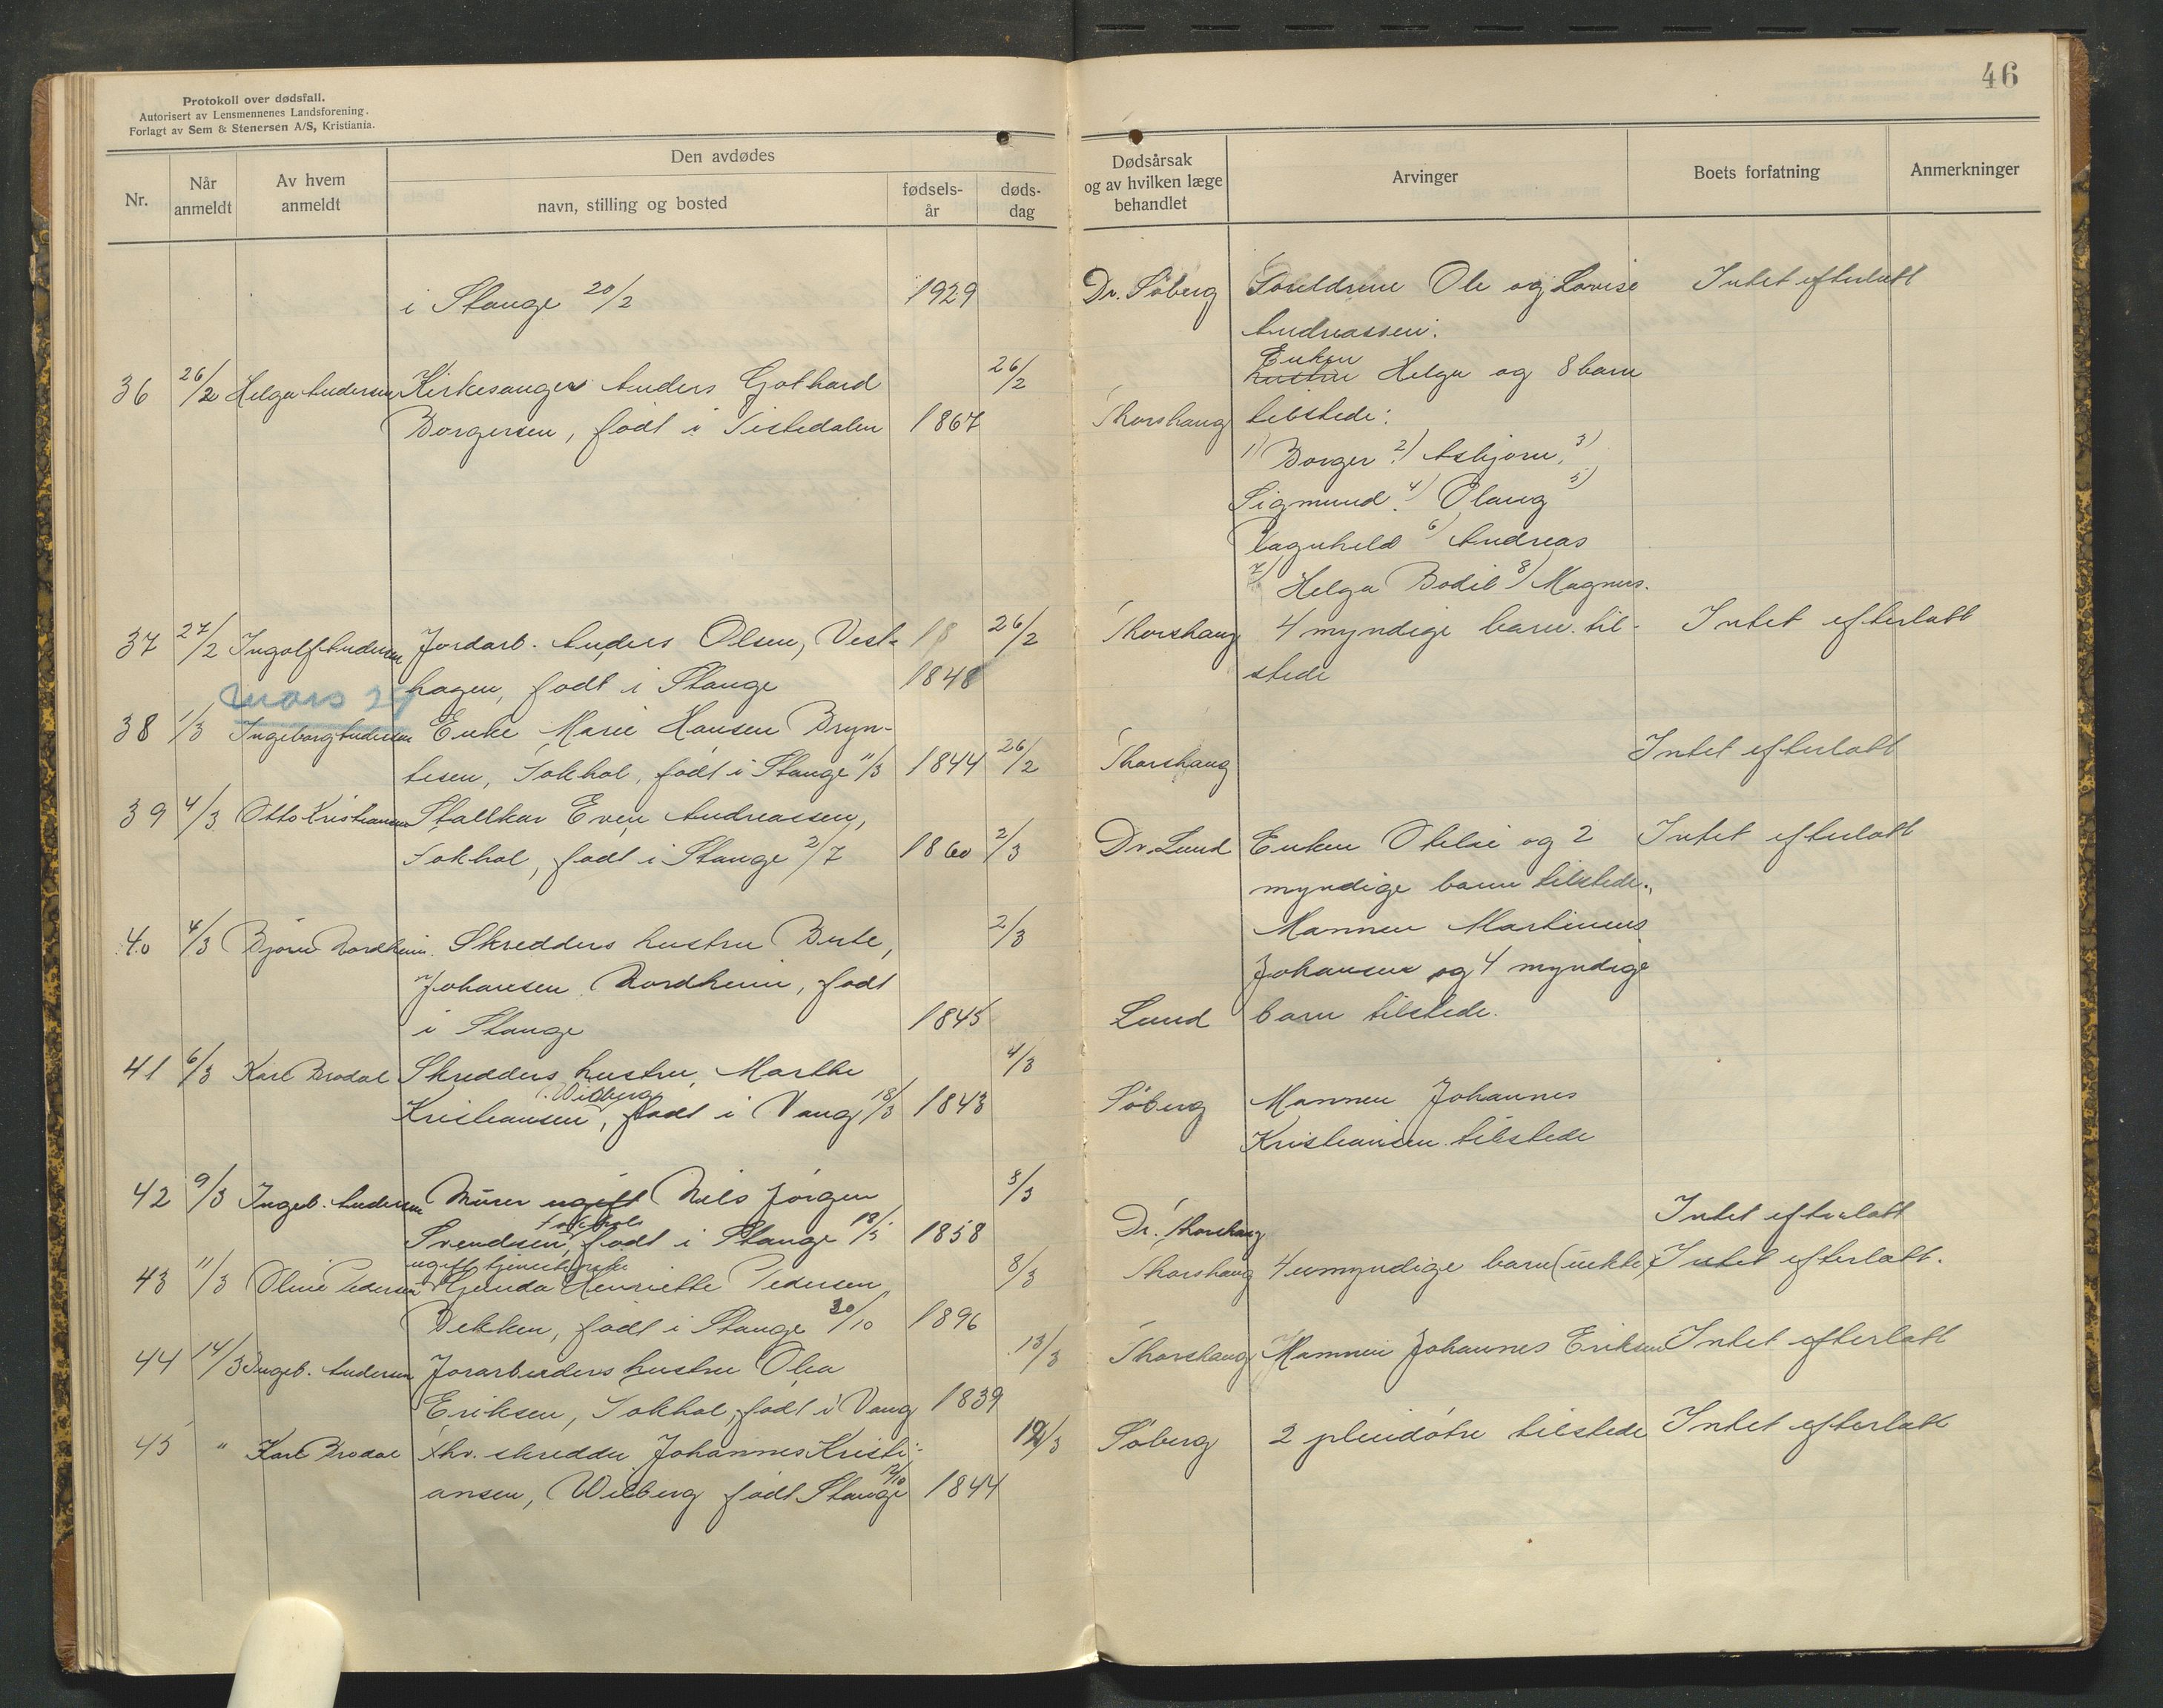 Protokoll over dødsfall.
Autorisert av Lensmennenes Landsforening.
Forlagt av Sem & Stenersen A/S, Kristiania.
Nr.
Når anmeldt
Av hvem anmeldt
Den avdødes
navn, stilling og bosted
fødsels-år
døds-dag
i Stange 20/2 1929
36 26/2 Helga Andersen Kirkesanger Anders Gothard 26/2
Borgersen, født i Tistedalen 1867
37 27/2 Ingolf Andersen Jordarb. Anders Olsen, Vest- 18 26/2
hagen, født i Stange 1848
mars 29
38 1/3 Ingeborg Andersen Enke Marie Hansen Bryn-
tesen, Sokhol, født i Stange 11/3 1844 26/2
39 4/3 Otto Kristiansen Stallkar Even Andreassen,
Sokhol, født i Stange 2/7 1860 2/3
40 4/3 Bjørn Nordheim. Skredders hustru Berte, 2/3
Johansen Nordheim, født
i Stange 1845
41 6/3 Karl Brodal Skredders hustru, Marthe 4/3
Wilberg
Kristiansen, født i Vang 18/3 1843
42 9/3 Ingeb. Andersen Murer ugift Nils Jørgen 8/3
Sokhol
Svendsen, født i Stange 1858
ugift tjenestepike
43 11/3 Oline Pedersen Henriette Pedersen 8/3
Bekken, født i Stange 30/10 1896
44 14/3 Ingeb. Andersen Jorarbeiders hustru Olea 13/3
Eriksen, Sokhol, født i Vang 1839
45 " Karl Brodal fhv. skredder Johannes Kristi-
ansen, Wilberg født Stange 12/10 1844
46
Dødsårsak og av hvilken læge behandlet
Arvinger
Boets forfatning
Anmerkninger
Dr. Søberg Foreldrene Ole og Lovise Intet efterlatt
Andreassen.
Enken
hustru Helga og 8 barn
Thorshaug tilstede:
1) Borger 2) Asbjørn, 3)
Sigmund 4) Olaug 5)
Ragnhild 6) Andreas
7) Helga Bodil 8) Magnus.
Thorshaug 4 myndige barn til- Intet efterlatt
stede
Thorshaug Intet efterlatt
Dr. Lund Enken Otelie og 2 Intet efterlatt
myndige barn tilstede.
Mannen Martinius
Johansen og 4 myndige
Lund barn tilstede.
Søberg Mannen Johannes
Kristiansen tilstede
Dr. Thorshaug Intet efterlatt
Thorshaug 4 umyndige barn (uekte) Intet efterlatt.
Thorshaug Mannen Johannes Eriksen Intet efterlatt
Søberg 2 pleiedøtre tilstede Intet efterlatt